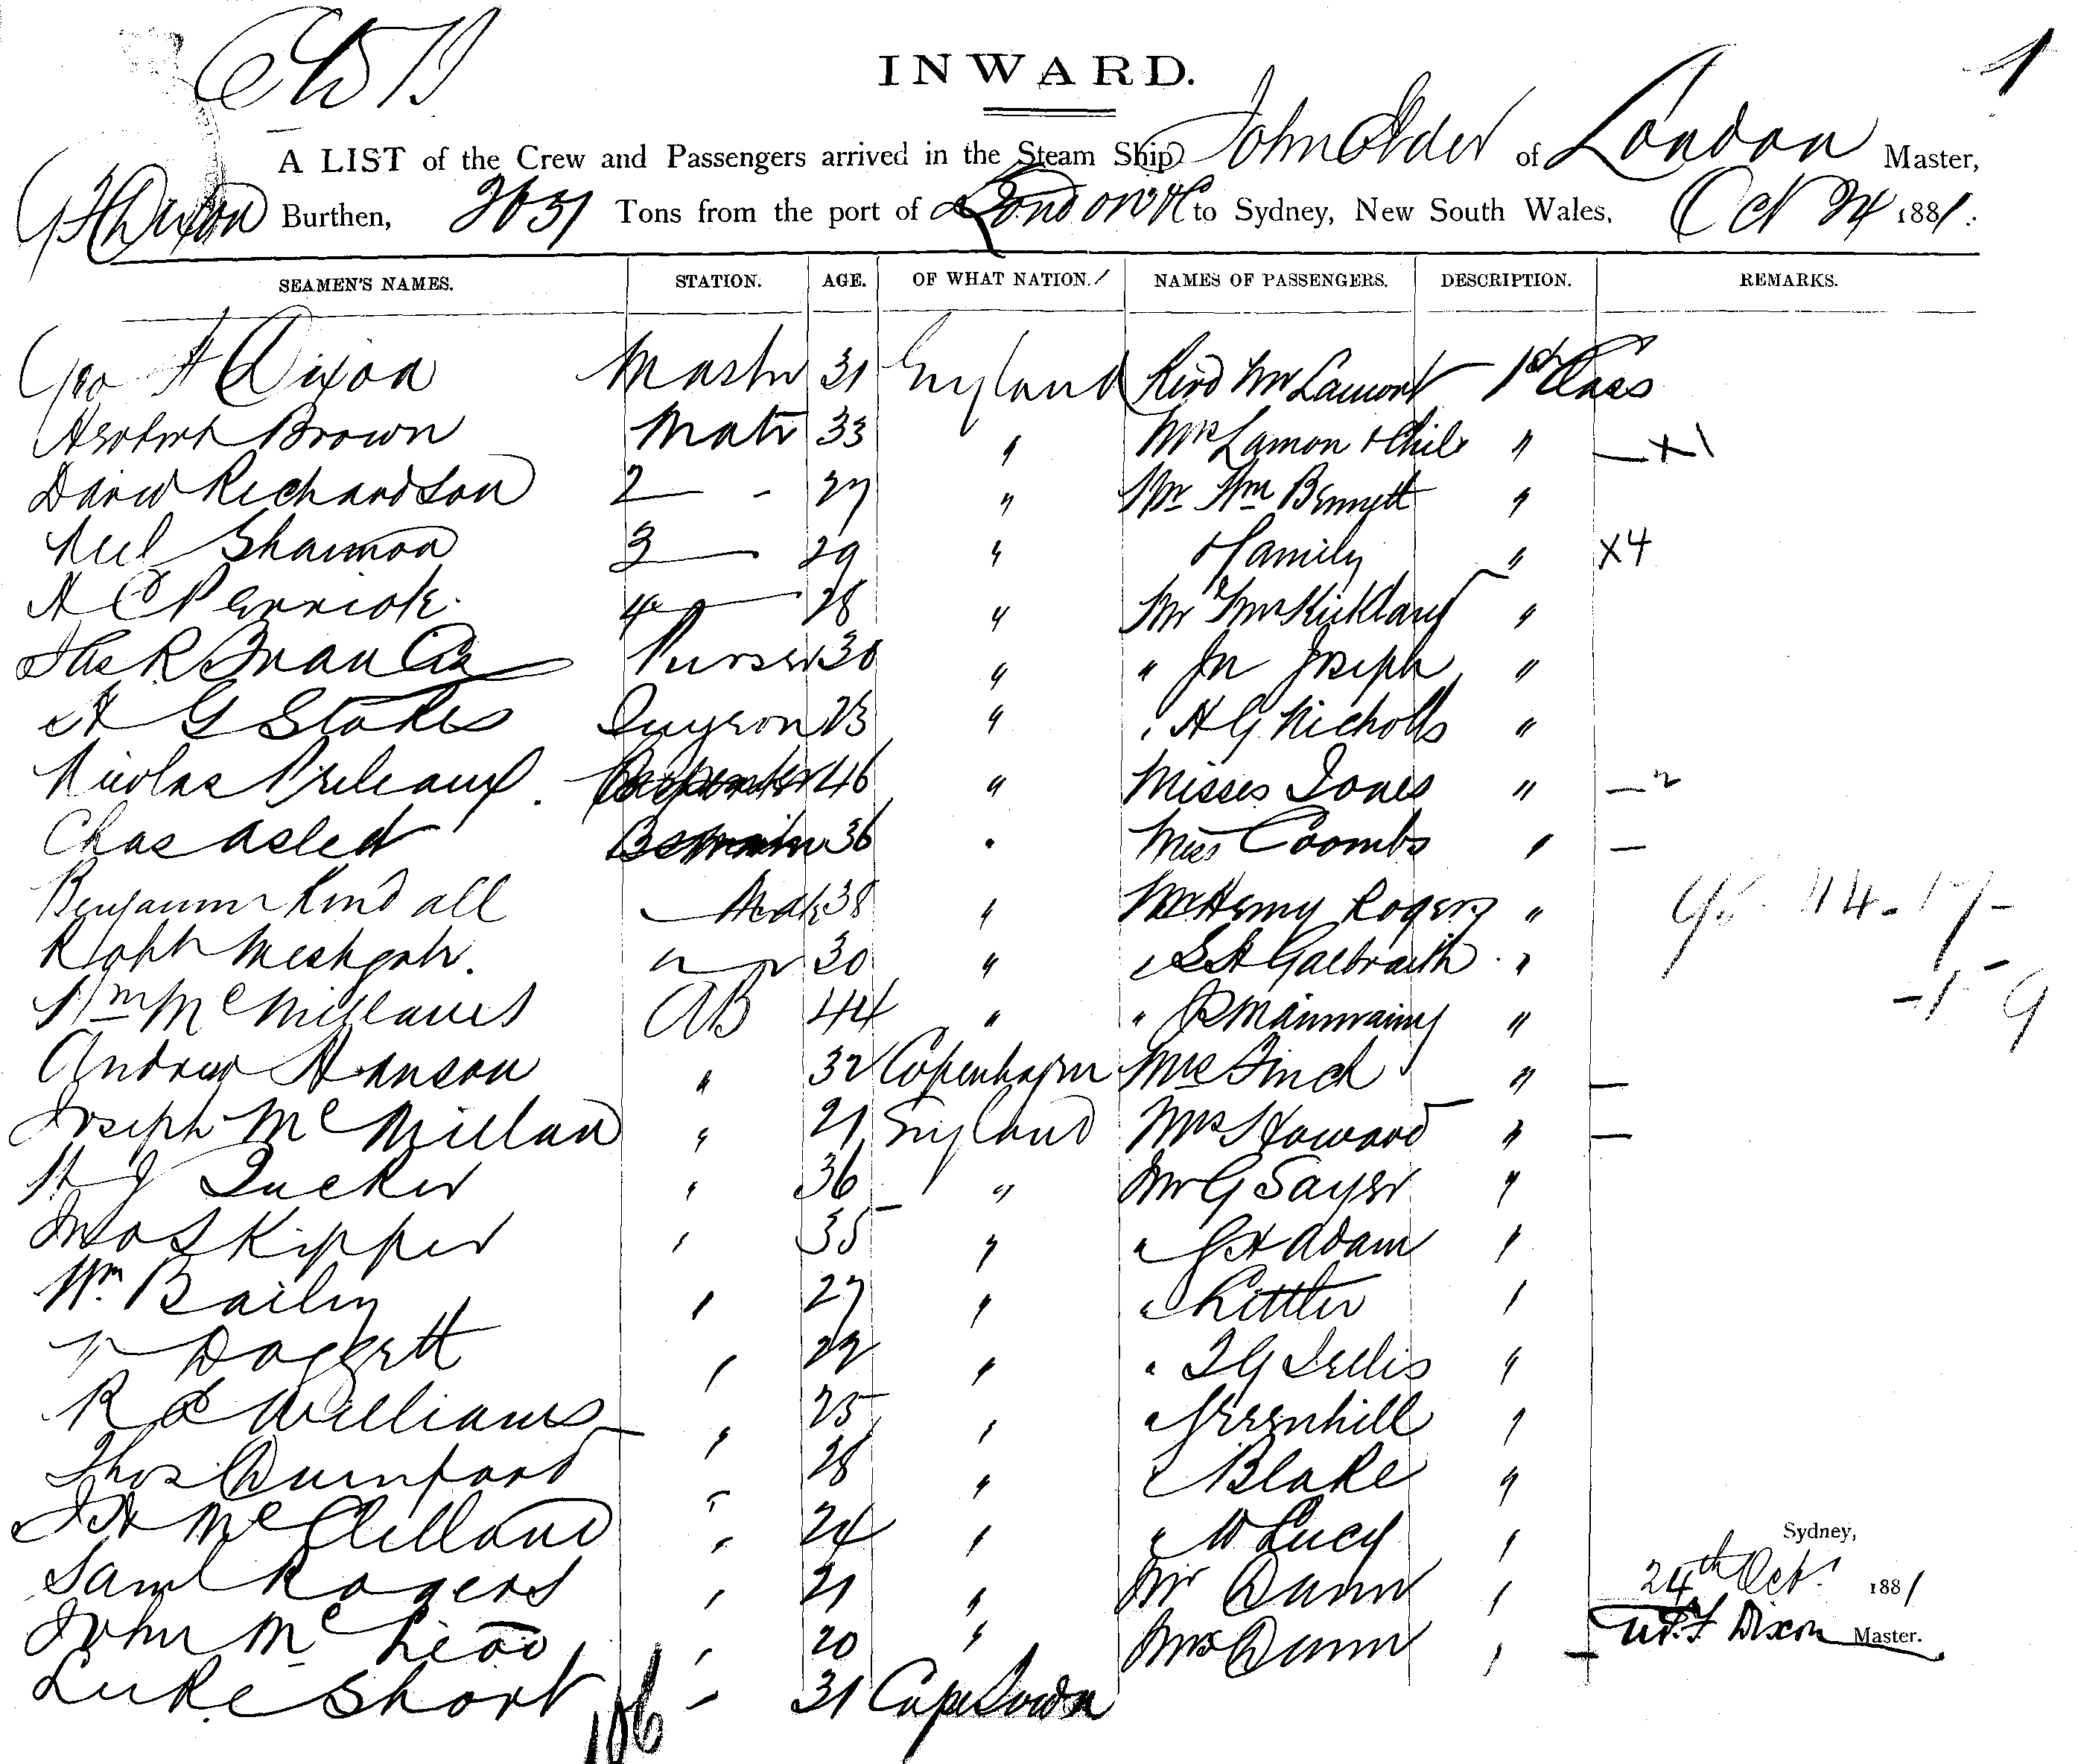 INWARD.
1
A LIST of the Crew and Passengers arrived in the Steam Ship John Elder of London Master,
G F Dixon Burthen, Tons from the port of London &c to Sydney, New South Wales, Oct 24 1881.
SEAMEN'S NAMES. STATION. AGE. OF WHAT NATION. NAMES OF PASSENGERS. DESCRIPTION. REMARKS.
Geo Dixon Master 31 England Revd Mr Lamont 1st Class
Herbert Brown Mate 33 " Mrs Lamon + Child " — x1
David Richardson 2 — - 27 " Mr Wm Bennett "
Neil Shannon 3 — 29 " + family " x4
A C Perrick 4 — 28 " Mr Wm Kirkland "
R Francis Purser 30 " " Jn Joseph "
A G Stokes Surgeon 23 " " H G Nicholls "
Nicolas Carpenter 46 " Misses Jones " — 2
Chas 36 " Miss Coombs " —
Benjamin Kendall — Mate 38 " Mr Henry Rogers "
Robt 30 " " S A Galbraith "
Wm Mc AB 44 " " Mainwaring "
Andrew Hanson " 32 Copenhagen Mrs Finch " —
Joseph McMillan " 21 England Mrs Howard " —
H J Tucker " 36 " Mr G Sayer "
Jno Skipper " 35 " " G H Adam "
Wm Bailey " 27 " " Kittler "
Doggett " 22 " " "
R L Williams " 25 " " Greenhill "
Thos Dumford " 28 " " Blake "
J H McClelland " 24 " " W Lucy "
Saml Rogers " 21 " Mr Dunn "
John McLeod " 20 " Mrs Dunn " —
Luke Short " 31 Cape Town
106
Sydney,
24th Oct 1881
Dixon Master.